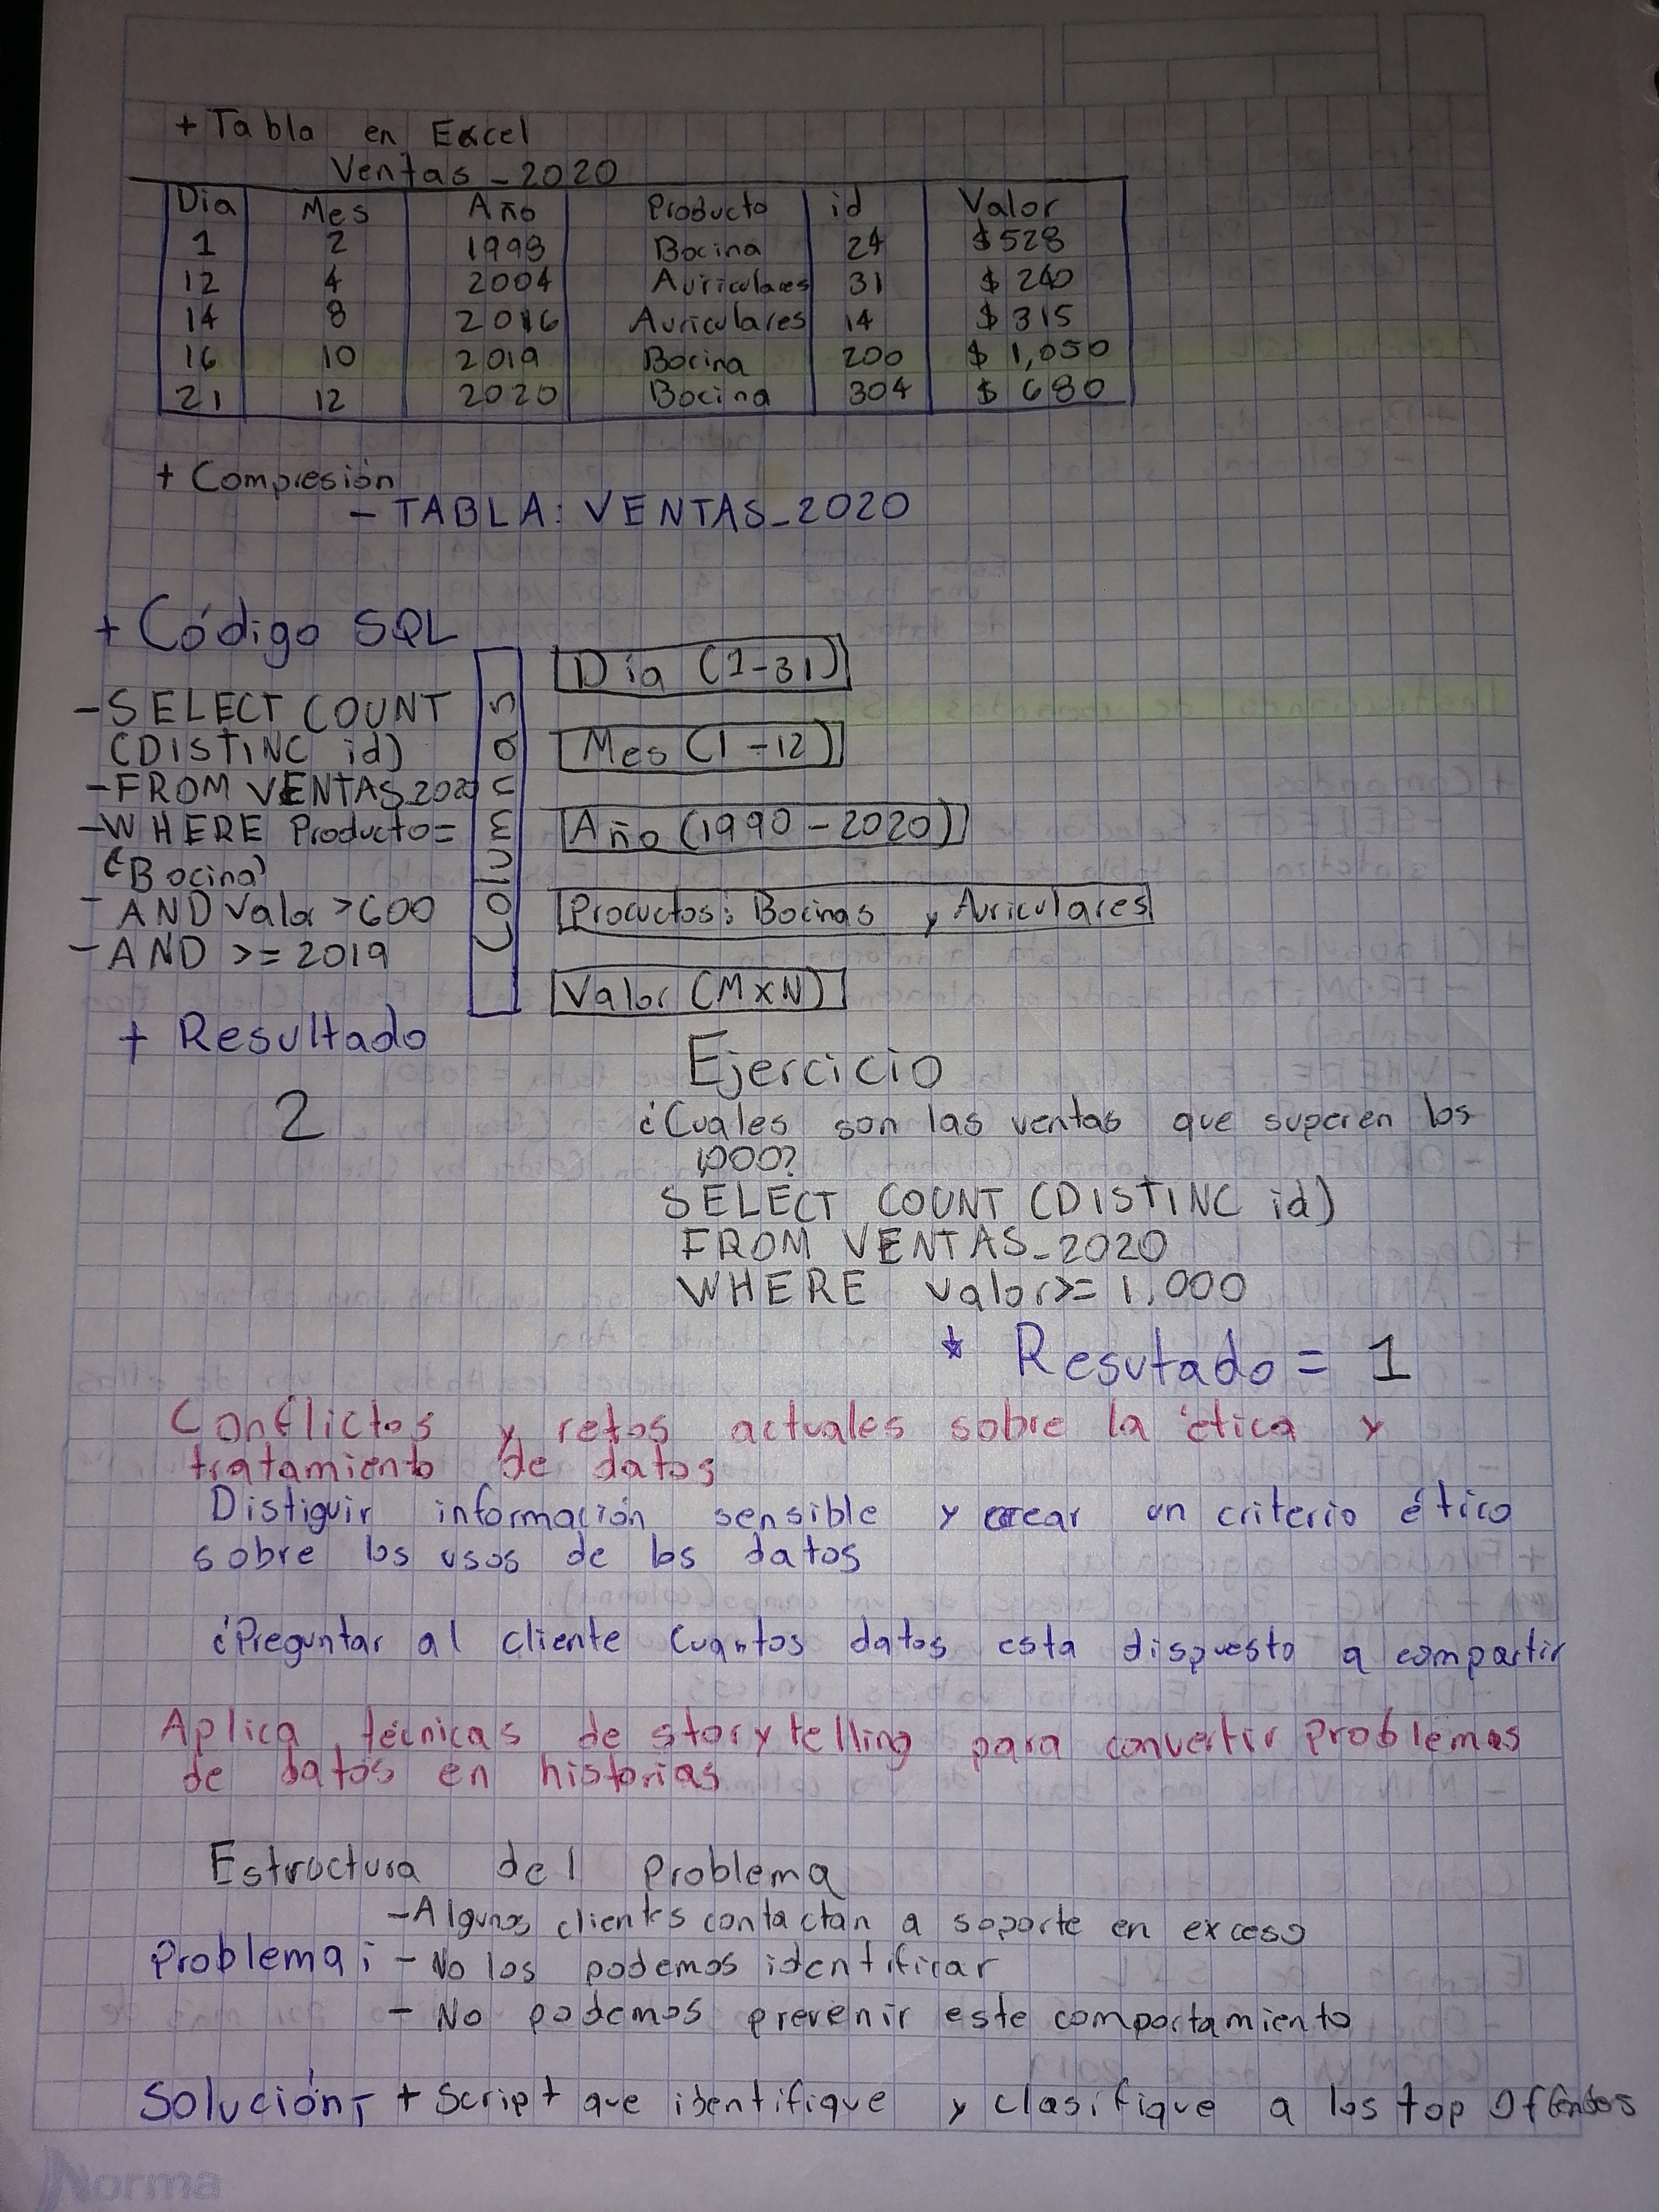 + Tabla en Excel
Ventas_2020
Dia Mes Año Producto id Valor
1 2 1993 Bocina 24 $528
12 4 2004 Auriculares 31 $ 240
14 8 2016 Auriculares 14 $ 315
16 10 2019 Bocina 200 $ 1,050
21 12 2020 Bocina 304 $ 680
+ Compresión
- TABLA: VENTAS_2020
+ Código SQL
- SELECT COUNT
(DISTINC id)
- FROM VENTAS_2020
- WHERE Producto=
(Bocina)
- AND Valor >600
- AND >= 2019
+ Resultado
2
Columnas
Dia (1-31)
Mes (1-12)
Año (1990-2020)
Procuctos: Bocinas y Auriculares
Valor (MXN)
Ejercicio
¿Cuales son las ventas que superen los
1,000?
SELECT COUNT (DISTINC id)
FROM VENTAS_2020
WHERE valor>= 1,000
* Resutado = 1
Conflictos y retos actuales sobre la ética y
tratamiento de datos
Distiguir información sensible y crear un criterio ético
sobre los usos de los datos
¿Preguntar al cliente cuantos datos esta dispuesto a compartir
Aplica técnicas de storytelling para convertir problemas
de datos en historias
Estructura del Problema
- Algunos clientes contactan a soporte en exceso
Problema: - No los podemos identificar
- No podemos prevenir este comportamiento
Solución: + Script que identifique y clasifique a los top
Norma